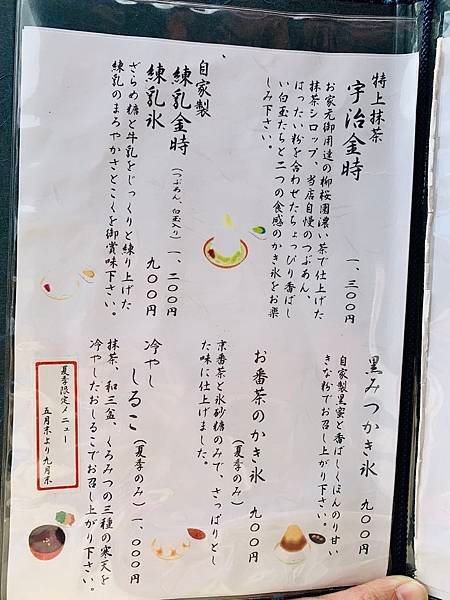 特上抹茶
宇治金時
一、三〇〇円
お家元御用達の柳桜園濃い茶で仕上げた
抹茶シロップ、当店自慢のつぶあん、
はったい粉を合わせたちょっぴり香ばし
い白玉たちと二つの食感のかき氷をお楽
しみ下さい。
自家製
練乳金時
(つぶあん、白玉入り)
一、二〇〇円
練乳氷
九〇〇円
ざらめ糖と牛乳をじっくりと練り上げた
練乳のまろやかさとこくを御賞味下さい。
黒みつかき氷
九〇〇円
自家製黒蜜と香ばしくほんのり甘い
きな粉でお召し上がり下さい。
お番茶のかき氷
(夏季のみ)
九〇〇円
京番茶と氷砂糖のみで、さっぱりとし
た味に仕上げました。
冷やし
しるこ
(夏季のみ)
一、〇〇〇円
抹茶、和三盆、くろみつの三種の寒天を
冷やしたおしるこでお召し上がり下さい。
夏季限定メニュー
五月末より九月末